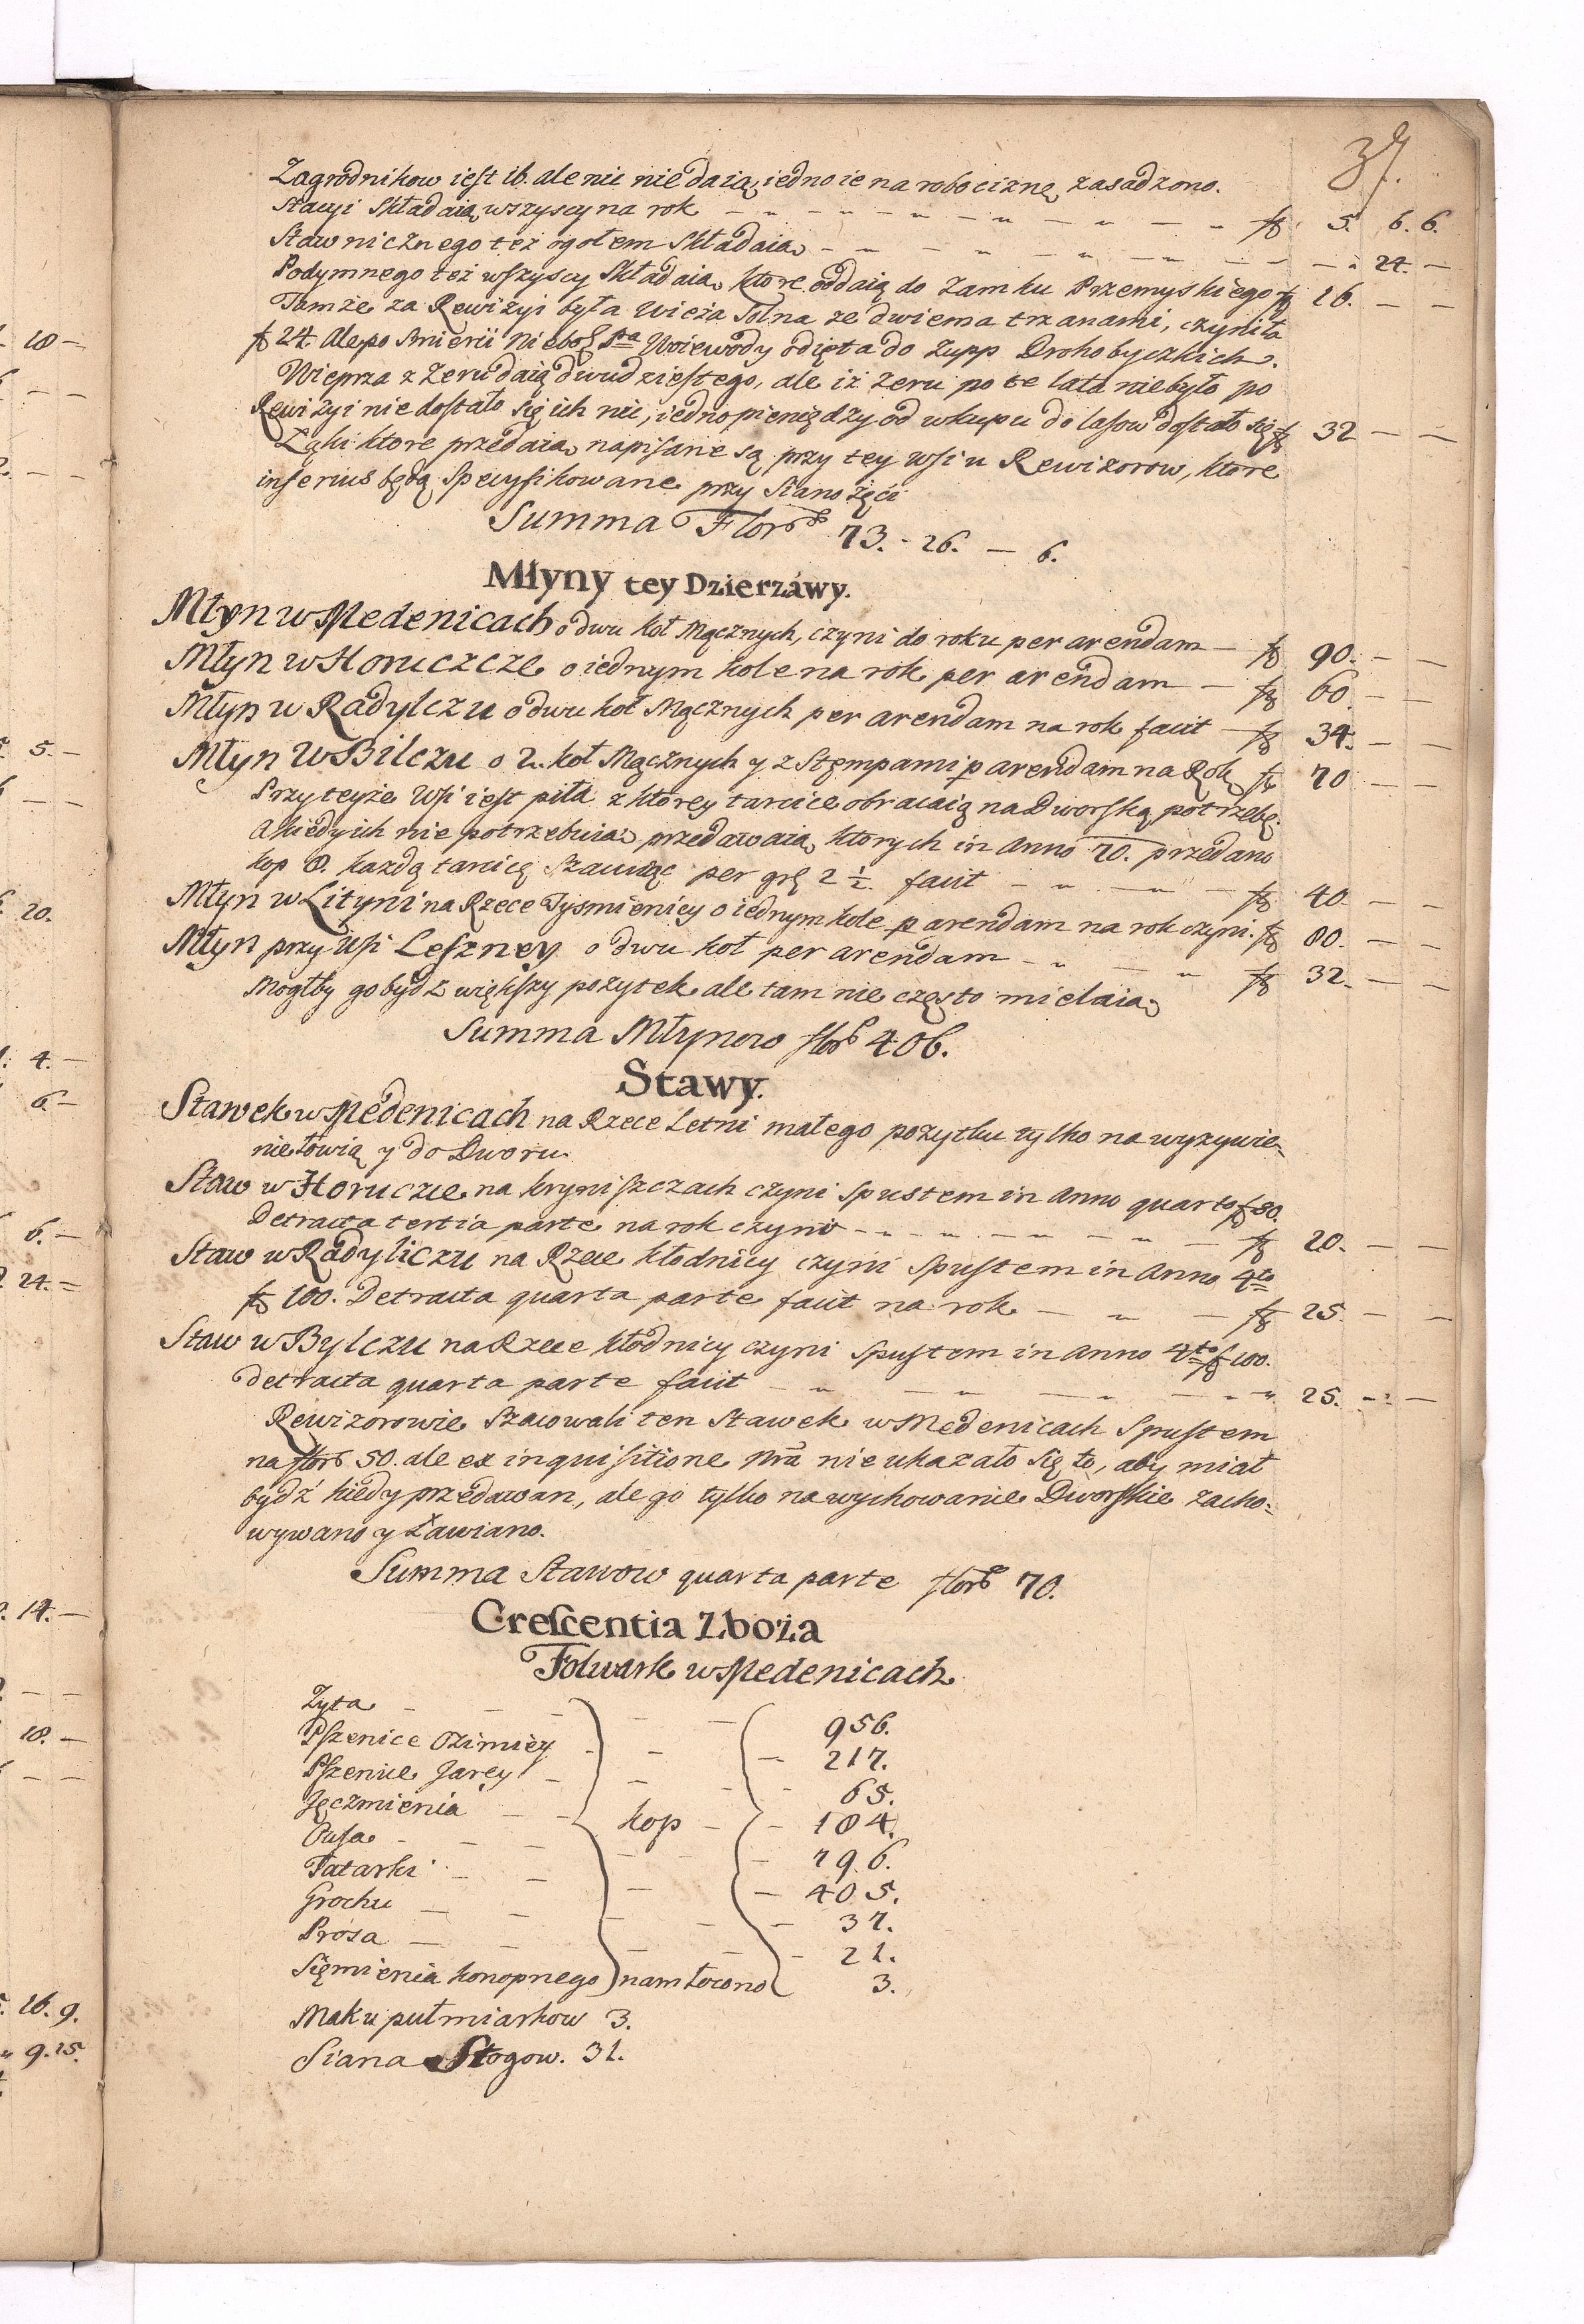 37.
Zagrodnikow iest 16. ale nic nie daią, iedno ie na robociznę zasadzono.
Stacyi składaią wszyscy na rok — fl 5. 6. 6.
Stawnicznego też ogołem składaią — 24. —
Podymnego też wszyscy składaią, ktore oddaią do Zamku Przemyskiego fl 16. — —
Tamże za Rewizyi była Wieża Solna ze dwiema trzanami, czyniła
fl 24. Ale po śmierii Niebosz. Pa Woiewody odięta do Zupp Drohobyczkich.
Wieprza z Zeru daią dwudziestego, ale iż Zeru po te lata niebyło po
Rewizyi nie dostało się ich nic, iedno pieniędzy od wkupu do lasow dostało się fl 32 — —
Łąki ktore przedaią, napisane są przy tey wsi u Rewizorow, ktore
inferius będą specyfikowane przy Sianożęći
Summa Flor 73. - 26. — 6.
Młyny tey Dzierżáwy.
Młyn w Medenicach o dwu koł Mącznych, czyni do roku per arendam — fl 90. — —
Młyn w Horuczcze o iednym kole na rok per arendam — fl 60. — —
Młyn w Radylczu o dwu koł Mącznych per arendam na rok facit — fl 34. — —
Młyn w Bilczu o 2. koł Mącznych y z Stęmpami p arendam na Rok fl 70 — —
Przy teyże Wsi iest piła z ktorey tarcice obracaią na Dworską potrzebę.
a kiedy ich nie potrzebuią, przedawaią, ktorych in Anno 70. przedano
kop 8. każdą tarcicę szacuiąc per grs 2 ½. facit — fl 40 — —
Młyn w Lityni na Rzece Tysmienicy o iednym kole p arendam na rok czyni. fl 80. — —
Młyn przy Wsi Leszney o dwu koł per arendam — fl 32. — —
Mogłby go bydź większy pożytek ale tam nie często mielaią
Summa Młynow flor 406.
Stawy.
Stawek w Medenicach na Rzece Letni małego pożytku tylko na wyżywie-
nie łowią y do Dworu.
Staw w Horuczcze na kryniszczach czyni spustem in Anno quarto fl 80.
Detracta tertia parte na rok czyni — fl 20. — —
Staw w Radyliczu na Rzece Kłodnicy czyni spustem in Anno 4to
fl 100. Detracta quarta parte facit na rok — fl 25. — —
Staw w Bylczu na Rzece Kłodnicy czyni spustem in Anno 4to fl 100.
detracta quarta parte facit — 25. — —
Rewizorowie szacowali ten Stawek w Medenicach spustem
na flor 50. ale ex inquisitione nra nie ukazało się to, aby miał
bydź kiedy przedawan, ale go tylko na wychowanie Dworskie zacho-
wywano y Ławiano.
Summa Stawow quarta parte flor 70.
Crescentia Zboża
Folwark w Medenicach
Zyta — 956.
Pszenice Ozimiey — 217.
Pszenice Jarey — 65.
Jęczmienia — kop — 184.
Owsa — 796.
Tatarki — 405.
Grochu — 37.
Prosa — 21.
Sięmienia konopnego namłocono 3.
Maku pułmiarkow 3.
Siana Stogow. 31.